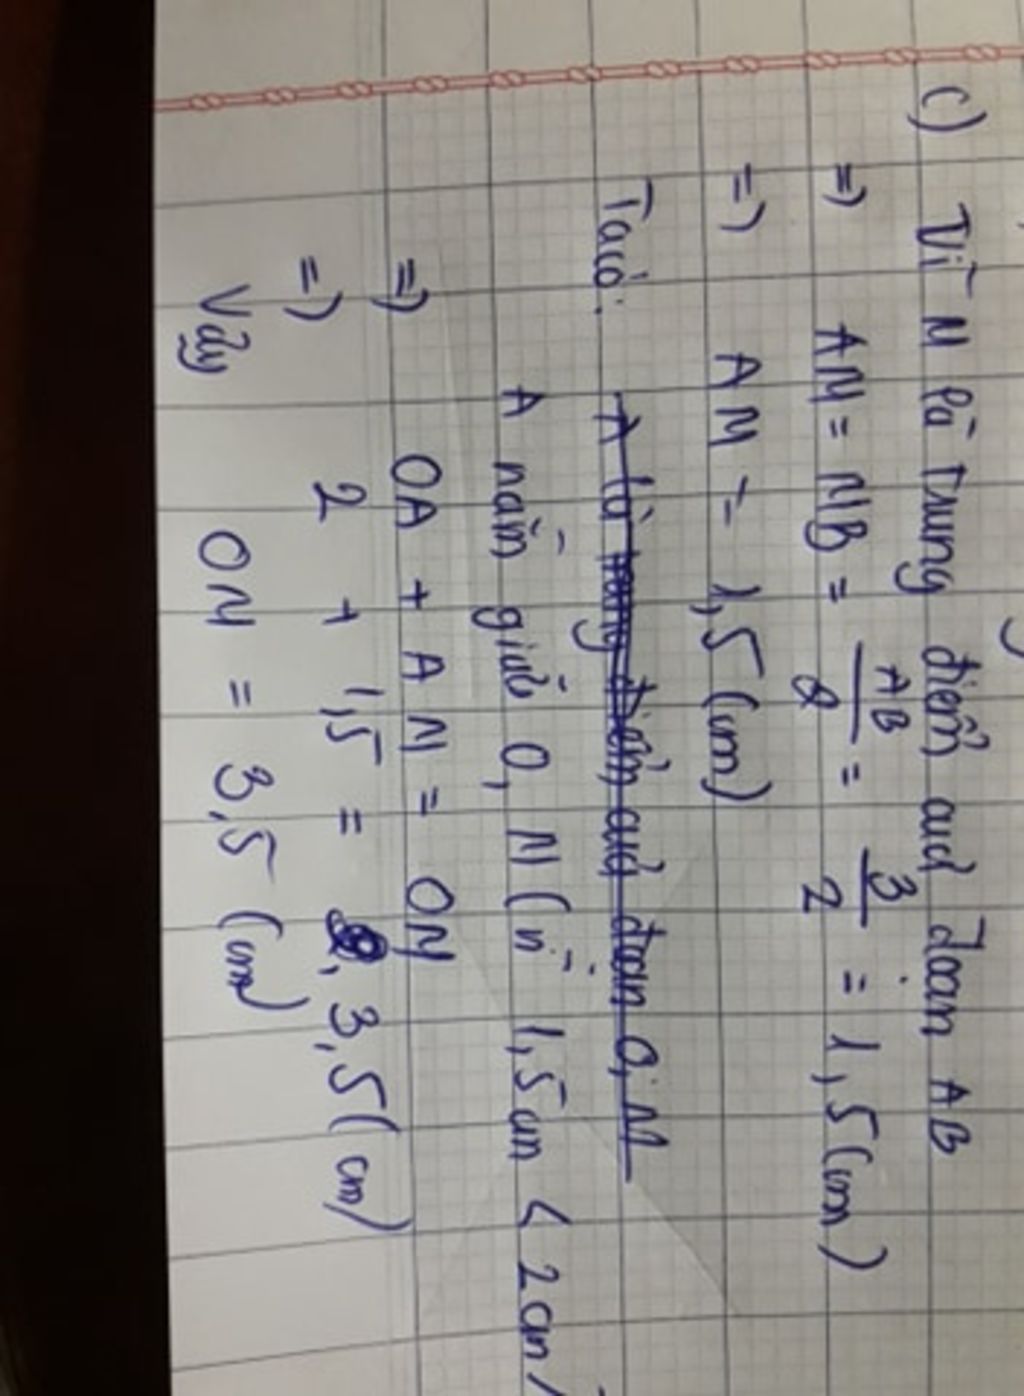 c) Vì M là Trung điểm của đoạn AB
=> AM = MB = AB/2 = 3/2 = 1,5 (cm)
=> AM = 1,5 (cm)
Ta có: A là trung điểm của đoạn O, M
A nằm giữa O, M (vì 1,5cm < 2cm)
=> OA + AM = OM
=> 2 + 1,5 = 3,5 (cm)
Vậy OM = 3,5 (cm)